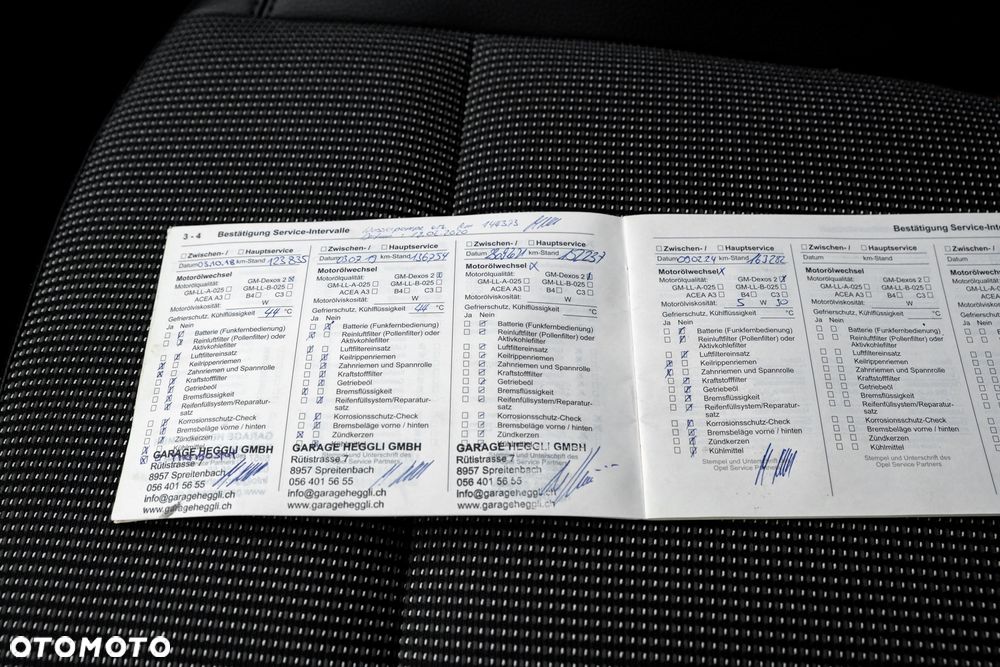 3 - 4 Bestätigung Service-Intervalle
148373
Zwischen-/ Hauptservice
Datum 03.10.18 km-Stand 123835
Motorölwechsel
Motorölqualität: GM-Dexos 2
GM-LL-A-025 GM-LL-B-025
ACEA A3 B4 C3
Motorölviskosität: W
Gefrierschutz, Kühlflüssigkeit 44 °C
Ja Nein
Batterie (Funkfernbedienung)
Reinluftfilter (Pollenfilter) oder
Aktivkohlefilter
Luftfiltereinsatz
Keilrippenriemen
Zahnriemen und Spannrolle
Kraftstofffilter
Getriebeöl
Bremsflüssigkeit
Reifenfüllsystem/Reparatur-
satz
Korrosionsschutz-Check
Bremsbeläge vorne / hinten
Zündkerzen
GARAGE HEGGLI GMBH
Rütistrasse 7
8957 Spreitenbach
056 401 56 55
info@garageheggli.ch
www.garageheggli.ch
Zwischen-/ Hauptservice
Datum km-Stand 136754
Motorölwechsel
Motorölqualität: GM-Dexos 2
GM-LL-A-025 GM-LL-B-025
ACEA A3 B4 C3
Motorölviskosität: W
Gefrierschutz, Kühlflüssigkeit 44 °C
Ja Nein
Batterie (Funkfernbedienung)
Reinluftfilter (Pollenfilter) oder
Aktivkohlefilter
Luftfiltereinsatz
Keilrippenriemen
Zahnriemen und Spannrolle
Kraftstofffilter
Getriebeöl
Bremsflüssigkeit
Reifenfüllsystem/Reparatur-
satz
Korrosionsschutz-Check
Bremsbeläge vorne / hinten
Zündkerzen
GARAGE HEGGLI GMBH
Rütistrasse 7
8957 Spreitenbach
056 401 56 55
info@garageheggli.ch
www.garageheggli.ch
Zwischen-/ Hauptservice
Datum km-Stand
Motorölwechsel X
Motorölqualität: GM-Dexos 2
GM-LL-A-025 GM-LL-B-025
ACEA A3 B4 C3
Motorölviskosität: W
Gefrierschutz, Kühlflüssigkeit °C
Ja Nein
Batterie (Funkfernbedienung)
Reinluftfilter (Pollenfilter) oder
Aktivkohlefilter
Luftfiltereinsatz
Keilrippenriemen
Zahnriemen und Spannrolle
Kraftstofffilter
Getriebeöl
Bremsflüssigkeit
Reifenfüllsystem/Reparatur-
satz
Korrosionsschutz-Check
Bremsbeläge vorne / hinten
Zündkerzen
GARAGE HEGGLI GMBH
Rütistrasse 7
8957 Spreitenbach
056 401 56 55
info@garageheggli.ch
www.garageheggli.ch
Bestätigung Service-Int
Zwischen-/ Hauptservice
Datum 09.02.24 km-Stand 163282
Motorölwechsel X
Motorölqualität: GM-Dexos 2
GM-LL-A-025 GM-LL-B-025
ACEA A3 B4 C3
Motorölviskosität: 5 W 30
Gefrierschutz, Kühlflüssigkeit °C
Ja Nein
Batterie (Funkfernbedienung)
Reinluftfilter (Pollenfilter) oder
Aktivkohlefilter
Luftfiltereinsatz
Keilrippenriemen
Zahnriemen und Spannrolle
Kraftstofffilter
Getriebeöl
Bremsflüssigkeit
Reifenfüllsystem/Reparatur-
satz
Korrosionsschutz-Check
Bremsbeläge vorne / hinten
Zündkerzen
Kühlmittel
Stempel und Unterschrift des
Opel Service Partners
Zwischen-/ Hauptservice
Datum km-Stand
Motorölwechsel
Motorölqualität: GM-Dexos 2
GM-LL-A-025 GM-LL-B-025
ACEA A3 B4 C3
Motorölviskosität: W
Gefrierschutz, Kühlflüssigkeit °C
Ja Nein
Batterie (Funkfernbedienung)
Reinluftfilter (Pollenfilter) oder
Aktivkohlefilter
Luftfiltereinsatz
Keilrippenriemen
Zahnriemen und Spannrolle
Kraftstofffilter
Getriebeöl
Bremsflüssigkeit
Reifenfüllsystem/Reparatur-
satz
Korrosionsschutz-Check
Bremsbeläge vorne / hinten
Zündkerzen
Kühlmittel
Stempel und Unterschrift des
Opel Service Partners
Zwischen-
Datum
Motorölwech
Motorölqualität:
GM-LL
AC
Motorölviskosit
Gefrierschutz,
Ja Nein
OTOMOTO